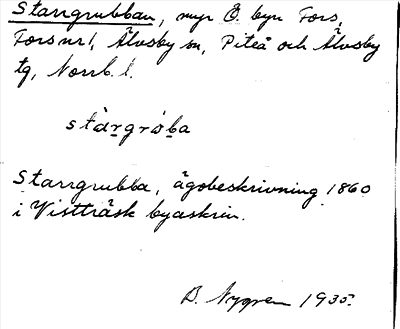 Starrgrubban, myr Ö. byn Fors,
Fors nr 1, Älvsby sn, Piteå och Älvsby
tg, Norrb. l.
stàrgròba
Starrgrubba, ägobeskrivning 1860
i Vistträsk byaskrin.
B. Nygren 1935.